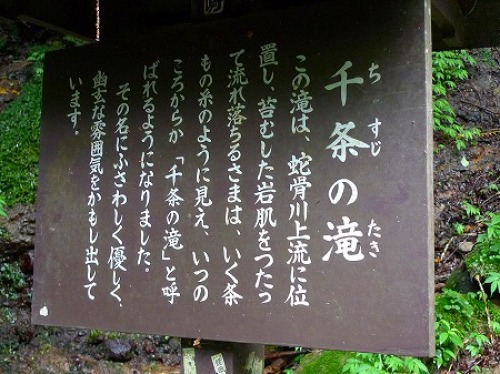 千条の滝
ち すじ たき
この滝は、蛇骨川上流に位
置し、苔むした岩肌をつたっ
て流れ落ちるさまは、いく条
もの糸のように見え、いつの
ころからか「千条の滝」と呼
ばれるようになりました。
その名にふさわしく優しく、
幽玄な雰囲気をかもし出して
います。